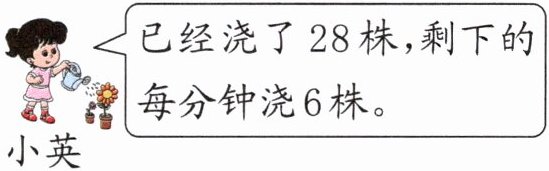 已经浇了28株,剩下的
每分钟浇6株。
小英